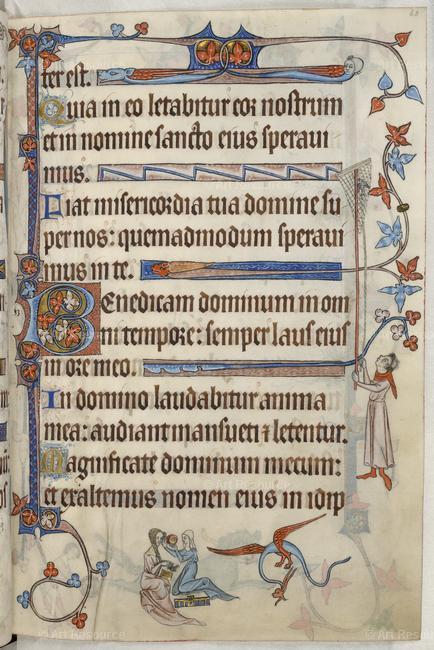 63
ter est.
Quia in eo letabitur cor nostrum
et in nomine sancto eius speraui
mus.
Fiat misericordia tua domine su
per nos: quemadmodum speraui
mus in te.
Benedicam dominum in om
ni tempore: semper laus eius
in ore meo.
In domino laudabitur anima
mea: audiant mansueti ⁊ letentur.
Magnificate dominum mecum:
et exaltemus nomen eius in idip
© Art Resource